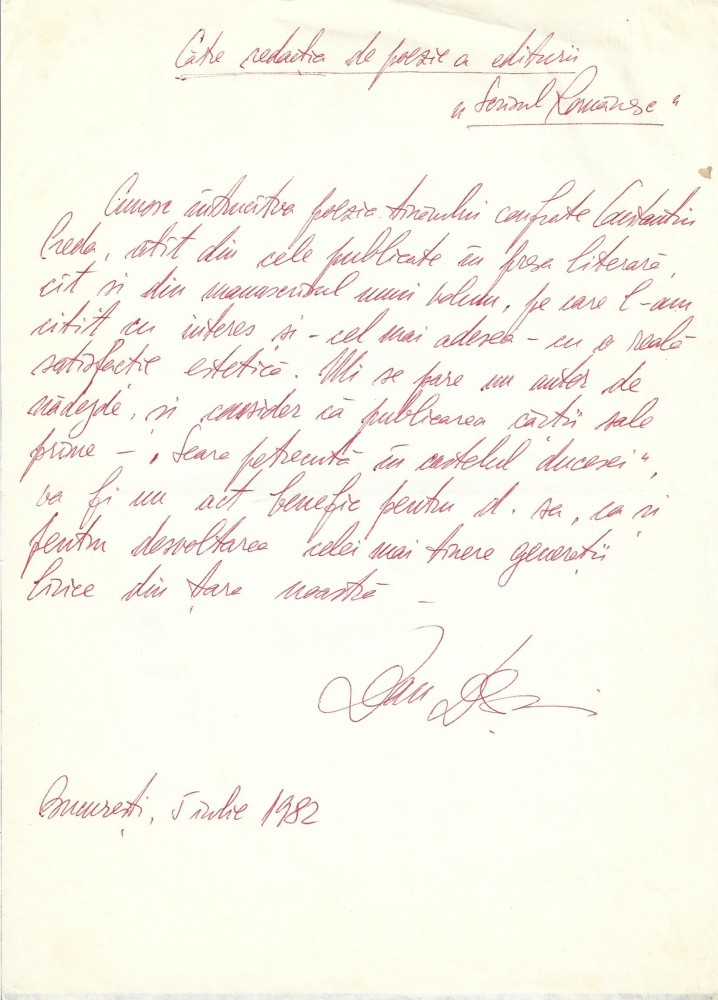 Către redacția de poezie a editurii
"Scrisul Românesc"
Cunosc întrucîtva poezia tinărului confrate Constantin
Preda, atît din cele publicate în presa literară,
cît și din manuscrisul unui volum, pe care l-am
citit cu interes și - cel mai adesea - cu o reală
satisfacție estetică. Mi se pare un autor de
nădejde, și consider că publicarea cărții sale
prime - "Seara petrecută în castelul ducesei",
va fi un act benefic pentru d. sa, ca și
pentru desvoltarea celei mai tinere generații
lirice din țara noastră -
Dan
București, 5 iulie 1982